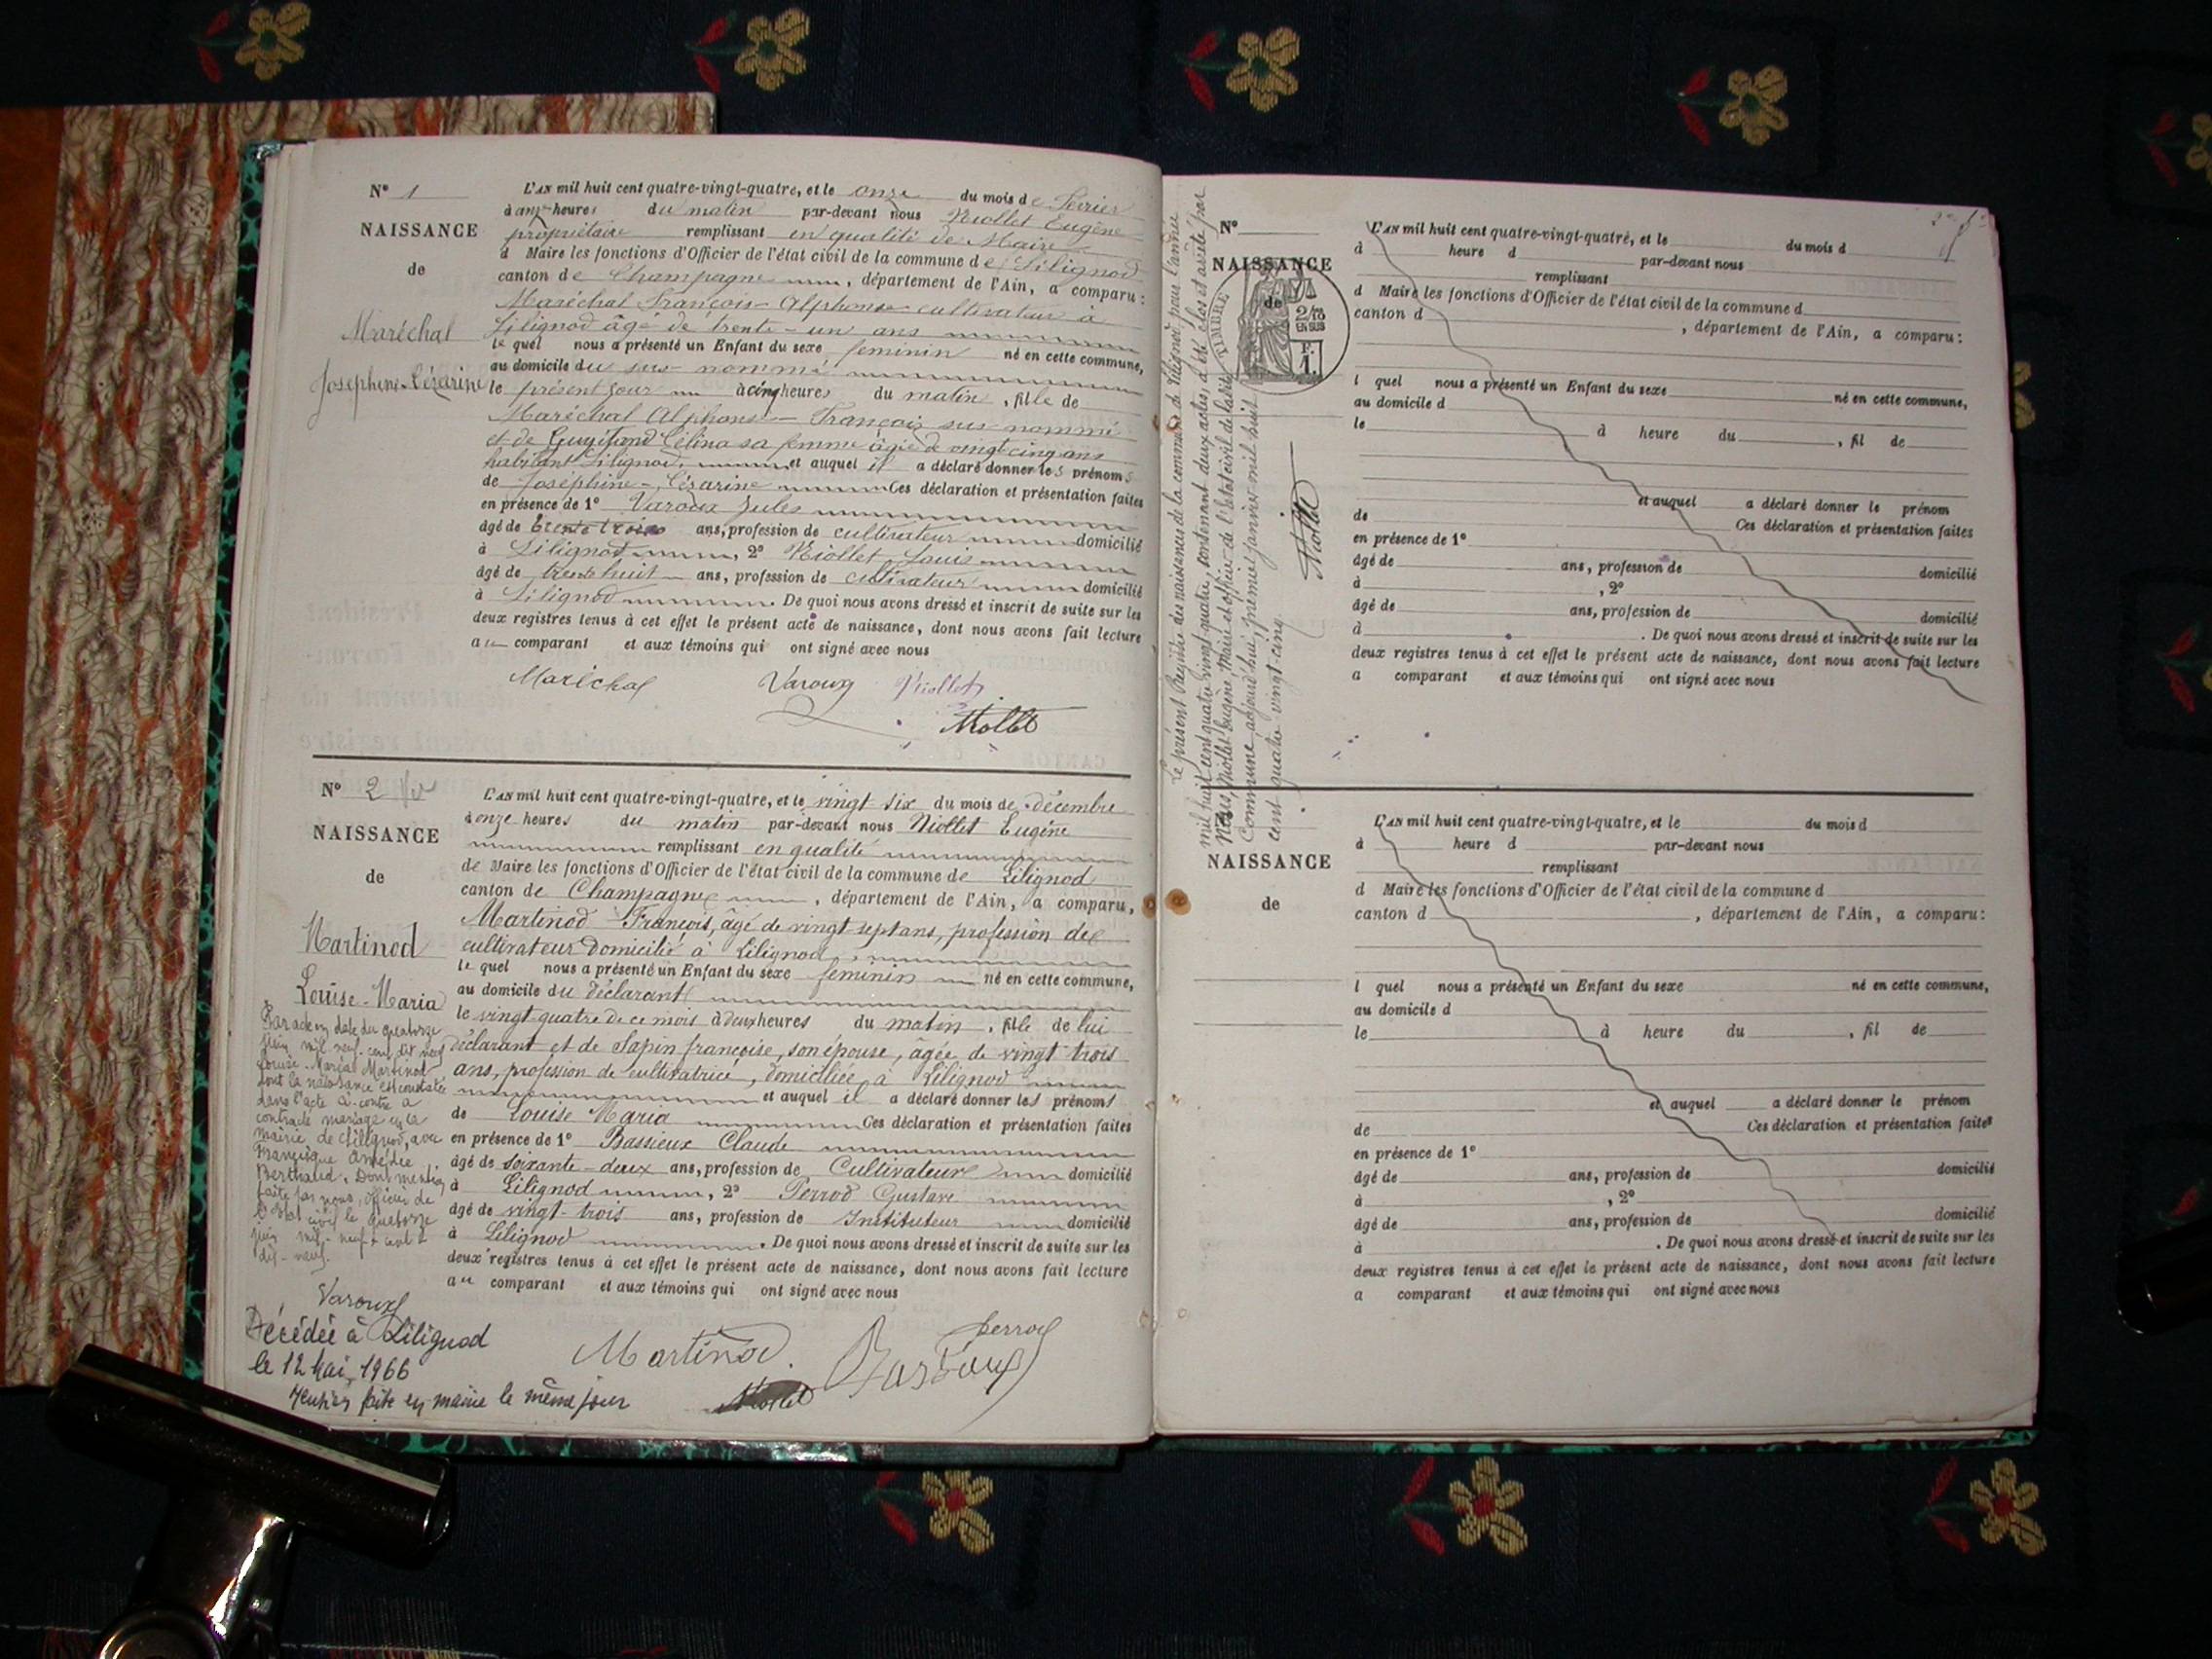 N° 1
NAISSANCE
de
Maréchal
Joséphine-Cézarine
L'AN mil huit cent quatre-vingt-quatre, et le onze du mois de
à heures du matin par-devant nous Niollet Eugène
propriétaire remplissant en qualité de Maire
d Maire les fonctions d'Officier de l'état civil de la commune de Lilignod
canton de Champagne, département de l'Ain, a comparu :
Maréchal François-Alphonse cultivateur à
Lilignod âgé de trente-un ans
le quel nous a présenté un Enfant du sexe feminin né en cette commune,
au domicile du sus-nommé
le présent jour à cinq heures du matin, fille de
Maréchal Alphonse-François sus nommé
et de Célina sa femme âgée de vingt cinq ans
habitant Lilignod, et auquel il a déclaré donner les prénoms
de Joséphine-Cézarine Ces déclaration et présentation faites
en présence de 1° Varoux Jules
âgé de trente trois ans, profession de cultivateur domicilié
à Lilignod, 2° Niollet Louis
âgé de trente huit ans, profession de cultivateur domicilié
à Lilignod. De quoi nous avons dressé et inscrit de suite sur les
deux registres tenus à cet effet le présent acte de naissance, dont nous avons fait lecture
au comparant et aux témoins qui ont signé avec nous
Maréchal Varoux Niollet
Niollet
N° 2
NAISSANCE
de
Martinod
Louise-Maria
Par acte en date du quatorze
juin mil neuf cent dix neuf
Louise-Maria Martinod
dont la naissance est constatée
dans l'acte ci-contre a
contracté mariage en la
mairie de Lilignod, avec
Francisque Amédée
Berthaud. Dont mention
faite par nous, officier de
l'état civil le quatorze
juin mil-neuf-cent
dix-neuf.
Varoux
Décédée à Lilignod
le 12 Mai 1966
Mention faite en mairie le même jour
L'AN mil huit cent quatre-vingt-quatre, et le vingt six du mois de décembre
à onze heures du matin par-devant nous Niollet Eugène
remplissant en qualité
de Maire les fonctions d'Officier de l'état civil de la commune de Lilignod
canton de Champagne, département de l'Ain, a comparu,
Martinod François, âgé de vingt sept ans, profession de
cultivateur domicilié à Lilignod,
le quel nous a présenté un Enfant du sexe feminin né en cette commune,
au domicile du déclarant
le vingt quatre de ce mois à deux heures du matin, fille de lui
déclarant et de Sapin françoise, son épouse, âgée de vingt trois
ans, profession de cultivatrice, domiciliée à Lilignod
et auquel il a déclaré donner les prénoms
de Louise Maria Ces déclaration et présentation faites
en présence de 1° Bassieux Claude
âgé de soixante-deux ans, profession de Cultivateur domicilié
à Lilignod, 2° Perrod Gustave
âgé de vingt-trois ans, profession de Instituteur domicilié
à Lilignod. De quoi nous avons dressé et inscrit de suite sur les
deux registres tenus à cet effet le présent acte de naissance, dont nous avons fait lecture
au comparant et aux témoins qui ont signé avec nous
Martinod. Perrod
Niollet
Le présent Registre des naissances de la commune de Lilignod pour l'année
mil huit cent quatre vingt-quatre, contenant deux actes, a été clos et arrêté par
Nous, Niollet Eugène, Maire et officier de l'état civil de ladite
Commune, aujourd'hui, premier janvier mil huit
cent quatre-vingt-cinq
Niollet
N°
NAISSANCE
de
TIMBRE
2/10
EN SUS
F.
1.
L'AN mil huit cent quatre-vingt-quatre, et le du mois d
à heure d par-devant nous
remplissant
d Maire les fonctions d'Officier de l'état civil de la commune d
canton d , département de l'Ain, a comparu :
l quel nous a présenté un Enfant du sexe né en cette commune,
au domicile d
le à heure du , fil de
et auquel a déclaré donner le prénom
de Ces déclaration et présentation faites
en présence de 1°
âgé de ans, profession de domicilié
à , 2°
âgé de ans, profession de domicilié
à . De quoi nous avons dressé et inscrit de suite sur les
deux registres tenus à cet effet le présent acte de naissance, dont nous avons fait lecture
a comparant et aux témoins qui ont signé avec nous
NAISSANCE
de
L'AN mil huit cent quatre-vingt-quatre, et le du mois d
à heure d par-devant nous
remplissant
d Maire les fonctions d'Officier de l'état civil de la commune d
canton d , département de l'Ain, a comparu :
l quel nous a présenté un Enfant du sexe né en cette commune,
au domicile d
le à heure du , fil de
et auquel a déclaré donner le prénom
de Ces déclaration et présentation faites
en présence de 1°
âgé de ans, profession de domicilié
à , 2°
âgé de ans, profession de domicilié
à . De quoi nous avons dressé et inscrit de suite sur les
deux registres tenus à cet effet le présent acte de naissance, dont nous avons fait lecture
a comparant et aux témoins qui ont signé avec nous